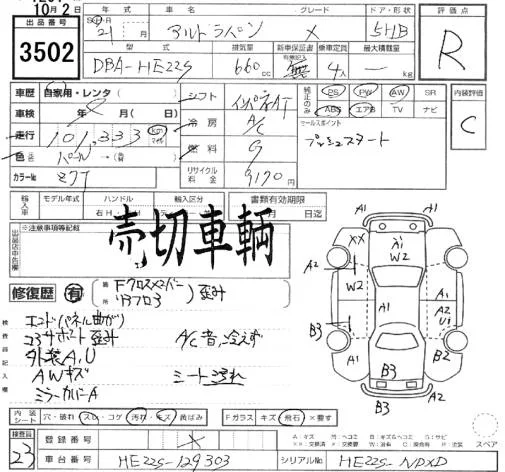 10月2日
年式 車名 グレード ドア・形状 評価点
出品番号 3502
21 年 月 アルトラパン X 5HB R
型式 排気量 新車保証書 乗車定員 最大積載量
DBA-HE22S 660cc 有無記入 無 4人 kg
車歴 自家用・レンタ( ) シフト インパネAT 純正のみ PS PW AW SR 内装評価
車検 年 月( ) 冷房 A/C ABS エアB TV ナビ C
走行 101,333 km マイル 燃料 G セールスポイント
色 パール→(替 ) プッシュスタート
カラーNo Z7T リサイクル料金 9170円
輸入車 モデル年式 ハンドル 輸入区分 書類有効期限
右H 月 日迄
※注意事項等記載
出品店申告欄
売切車輌
修復歴 有 箇所 Fクロスメンバー リヤフロア 歪み
検査員記入欄
エンドパネル曲がり
コアサポート歪み A/C音、冷えず
外装A、U
AWキズ シート汚れ
ミラーカバーA
A1 A1 XX W2 A1 W2 A2 A2 A1 A1 A2 U1 B3 B3 B3 A1 B3
内装シート 穴・破れ スレ・コゲ 汚れ・キズ 黄ばみ Fガラス キズ 飛石 ×要す
スペア
検査員 23
登録番号 X
車台番号 HE22S-129303 シリアルNo HE22S-NDXD